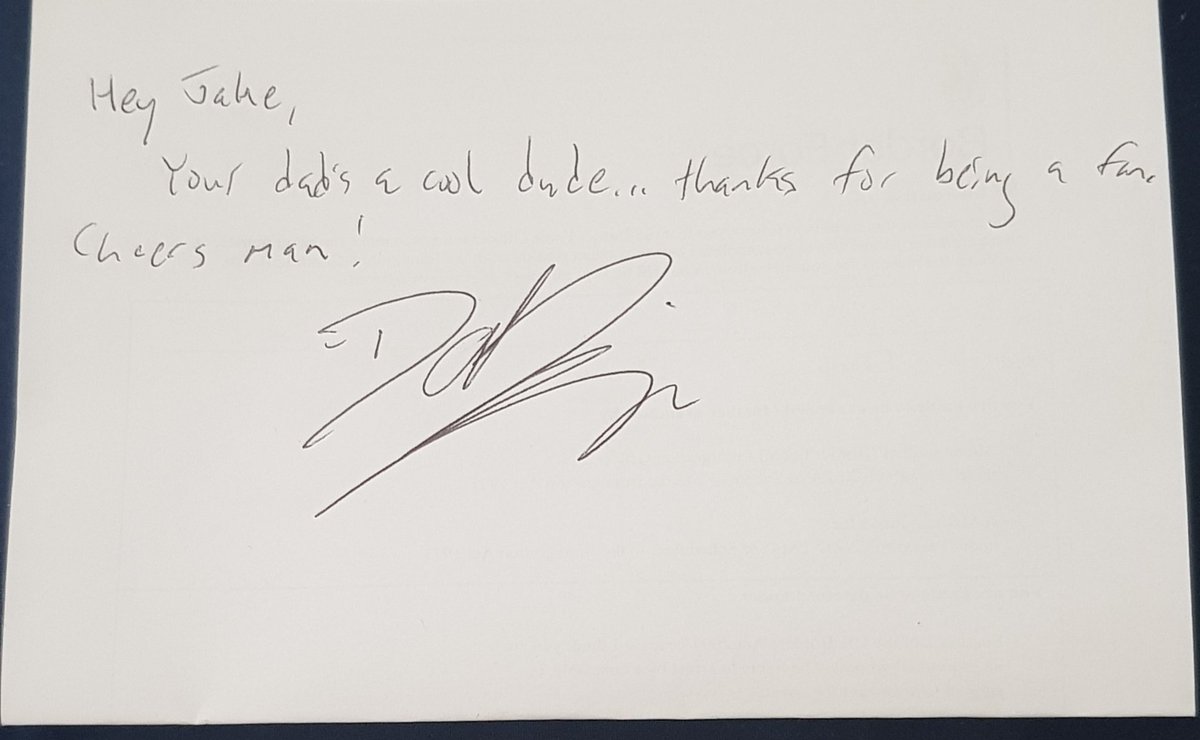 Hey Jake,
Your dad's a cool dude... thanks for being a fan.
Cheers man!